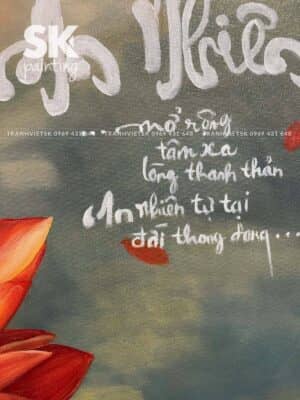 SK
painting
An Nhiên
TRANHVIETSK 0969 431 648
TRANHVIETSK 0969 431 648
mở rộng
tâm xa
lòng thanh thản
An nhiên tự tại
đãi thong dong...